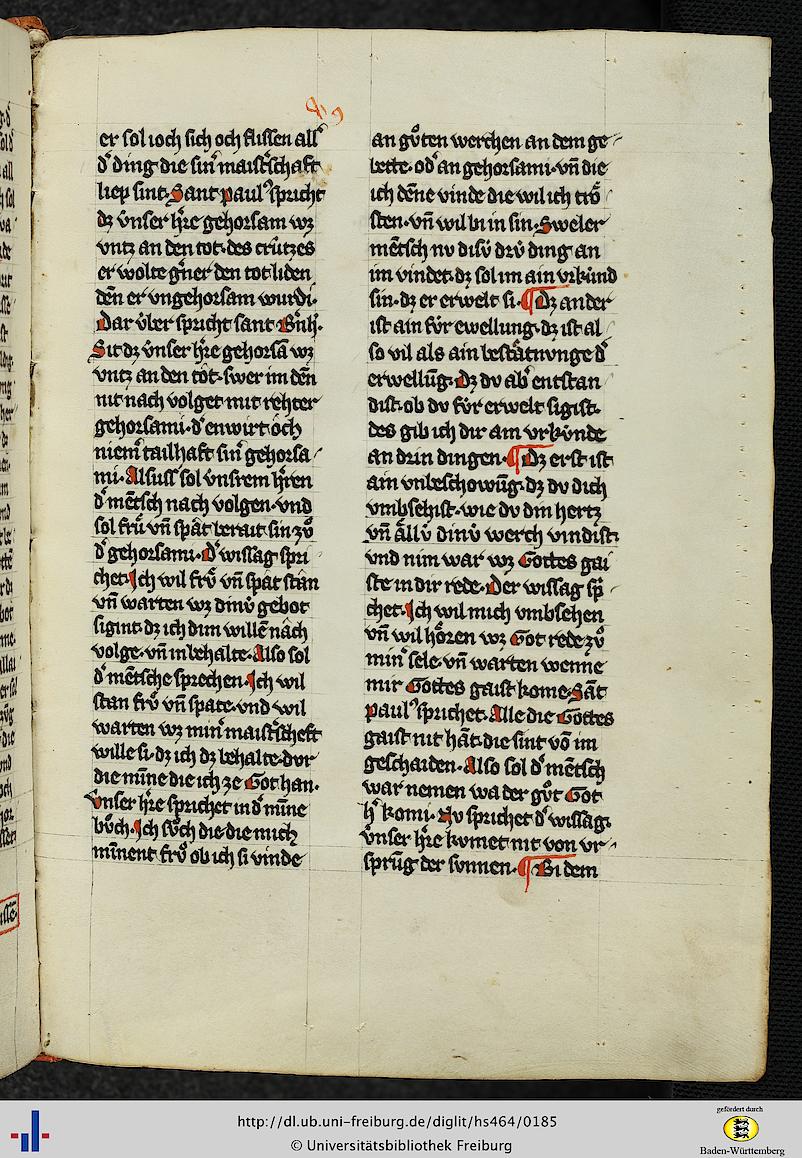 er sol ioch sich och flissen all᷒
d᷒ ding die sin᷒ maist᷒schaft
liep sint. Sant paul᷒ spricht
dz v̓nser h᷒re gehorsam wz
vntz an den tot. des crútzes
er wolte g᷒ner den tot liden
den̄ er vngehorsam wurdi.
Dar v́ber spricht sant B᷒nh̄.
Sit dz v́nser h᷒re gehorsā wz
vntz an den tôt. swer im den̄
nit nach volget mit rehter
gehorsami. d᷒ enwirt och
niem᷒ tailhaft sin᷒ gehorsa
mi. Alsust sol vnsrem h᷒ren
d᷒ mētsch nach volgen. vnd
sol frů vn̄ spât berait sin zů
d᷒ gehorsami. D᷒ wissag spri
chet. Ich wil frů vn̄ spât stân
vn̄ warten wz dinv́ gebot
sigint. dz ich dim willē nâch
volge. vn̄ in behalte. Also sol
d᷒ mētsche sprechen. Ich wil
stan frů vn̄ spate. vnd wil
warten wz min᷒ maist᷒scheft
wille si. dz ich dz behalte. dur
die mīne die ich ze Got han.
v́nser h᷒re sprichet in d᷒ mīne
bůch. Ich sůch die die mich
mīnent frů ob ich si vinde
an gůten werchen an dem ge
bette. od᷒ an gehorsami. vn̄ die
ich dēne vinde die wil ich trö
sten. vn̄ wil bi in sin. Sweler
mētsch nv disv́ drv́ ding an
im vindet. dz sol im ain vrkúnd
sin. dz er erwelt si. ¶ Dz ander
ist ain fúr ewellung. dz ist al
so vil als ain bestätnvnge d᷒
erwellūg. Dz dv ab᷒ entstan
dist. ob dv fúr erwelt sigist.
des gib ich dir ain vrkúnde
an drin dingen. ¶ Dz erst ist
ain vnbeschowūg. dz dv dich
vmbsehist. wie dv din hertz
vn̄ ällv́ dinv́ werch vindist.
vnd nim war wz Gottes gai
ste in dir rede. Der wissag sp᷒
chet. Ich wil mich vmbsehen
vn̄ wil hören wz Got rede zů
min᷒ sele. vn̄ warten wenne
mir Gottes gaist kome. Sāt
paul᷒ sprichet. Alle die Gottes
gaist nit hāt. die sint vō im
geschaiden. Also sol d᷒ mētsch
war nemen wa der gůt Got
h᷒ komi. Nv sprichet d᷒ wissag.
v́nser h᷒re kvmet nit von vr
sprūg der svnnen. ¶ Bi dem
http://dl.ub.uni-freiburg.de/diglit/hs464/0185
© Universitätsbibliothek Freiburg
gefördert durch
Baden-Württemberg